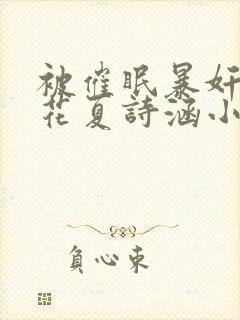 被催眠暴奸
花夏詩涵小
負心束